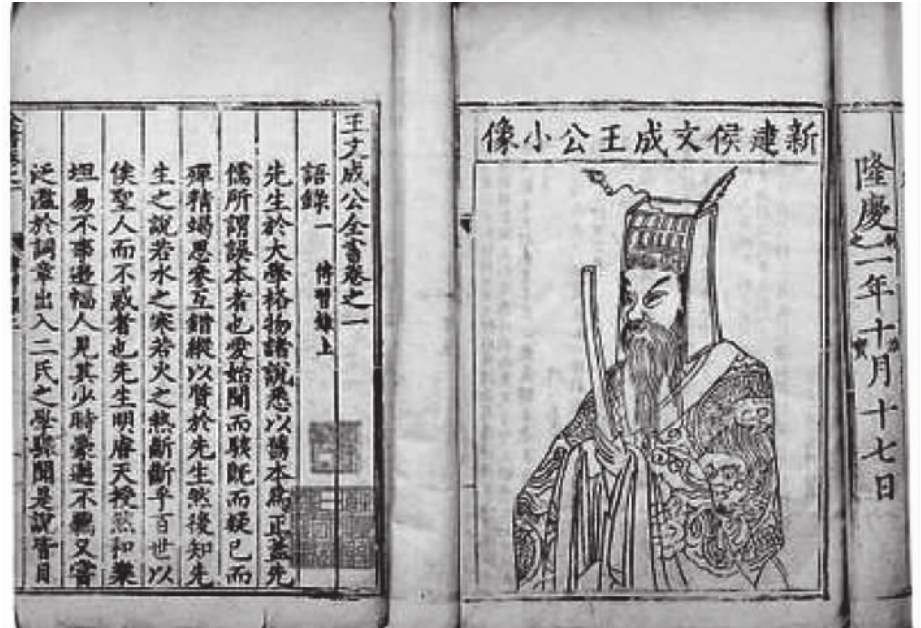 隆慶二年十月十七日
新建侯文成王公小像
王文成公全書卷之一
語錄一 傳習錄上
先生於大學格物諸說悉以舊本為正蓋先
儒所謂誤本者也愛始聞而駭既而疑已而
殫精竭思參互錯縱以質於先生然後知先
生之說若水之寒若火之熱斷斷乎百世以
俟聖人而不惑者也先生明睿天授然和樂
坦易不事邊幅人見其少時豪邁不羈又嘗
泛濫於詞章出入二氏之學驟聞是說皆目